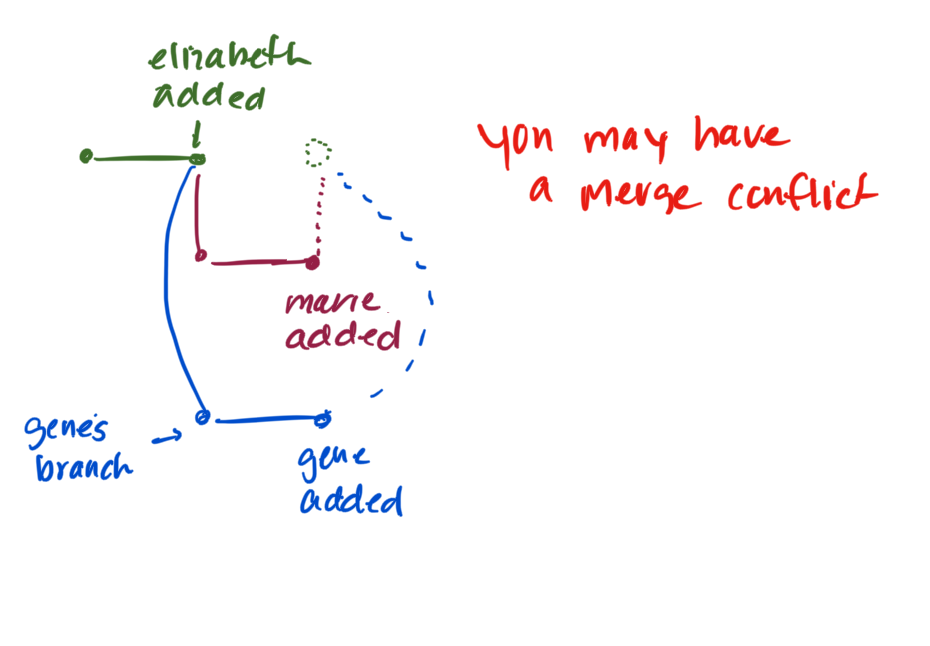 elizabeth
added
you may have
a merge conflict
marie
added
gene's
branch
gene
added